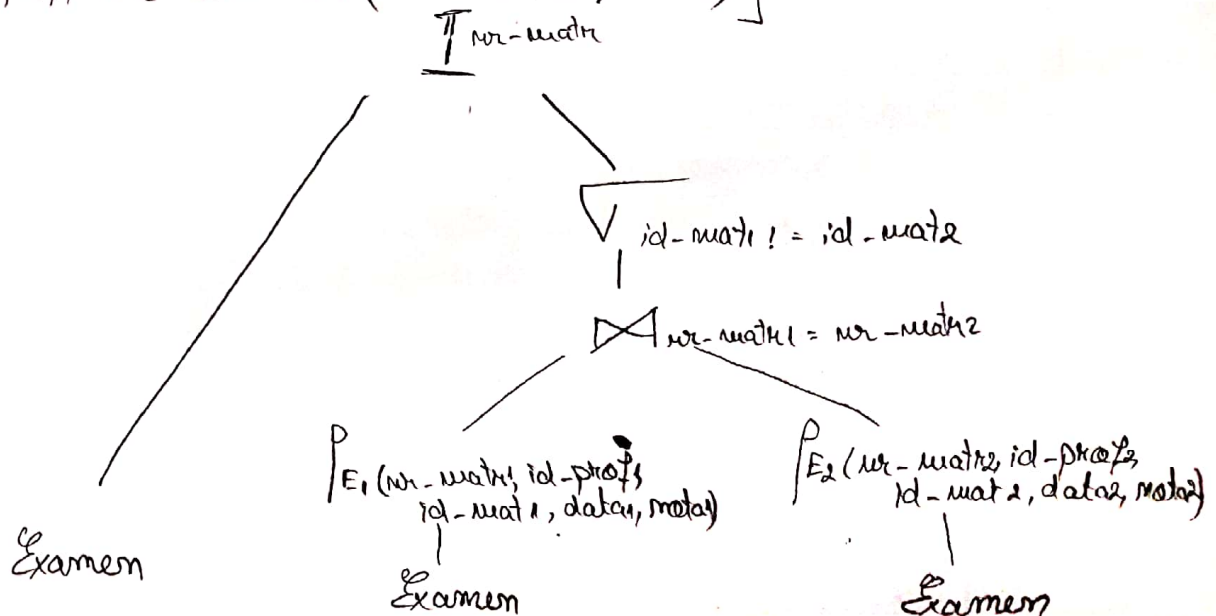 π nr-matr
σ id-mat1 != id-mat2
⋈ nr-matr1 = nr-matr2
ρ E1 (nr-matr1, id-prof1,
id-mat1, data1, nota1)
ρ E2 (nr-matr2, id-prof2,
id-mat2, data2, nota2)
Examen
Examen
Examen